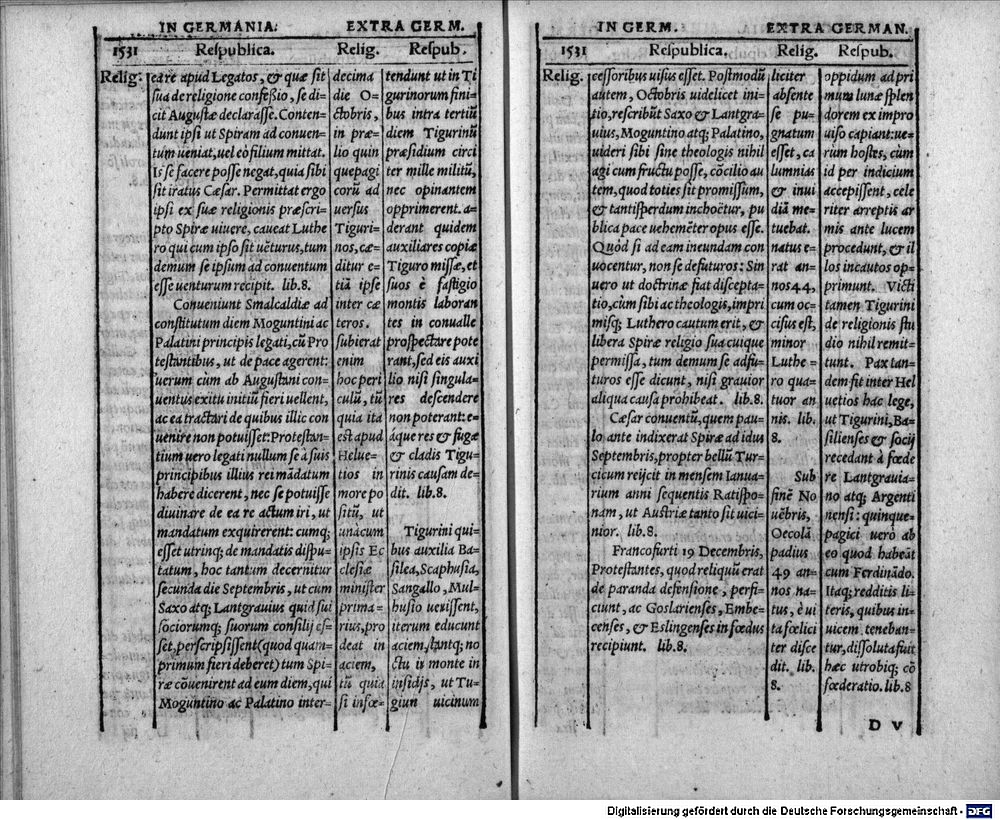 IN GERMANIA.
EXTRA GERM.
1531
Reſpublica.
Relig.
Reſpub.
Relig:
eare apud Legatos, & quæ ſit
ſua de religione confeßio, ſe di-
cit Auguſtæ declaraſſe. Conten-
dunt ipſi ut Spiram ad conuen-
tum ueniat, uel eò filium mittat.
Is ſe facere poſſe negat, quia ſibi
ſit iratus Cæſar. Permittat ergo
ipſi ex ſuæ religionis præſcri-
pto Spiræ uiuere, caueat Luthe
ro qui cum ipſo ſit uẽturus, tum
demum ſe ipſum ad conuentum
eſſe uenturum recipit. lib.8.
Conueniunt Smalcaldiæ ad
conſtitutum diem Moguntini ac
Palatini principis legati, cũ Pro
teſtantibus, ut de pace agerent:
uerum cùm ab Auguſtani con-
uentus exitu initiũ fieri uellent,
ac ea tractari de quibus illic con
uenire non potuiſſet: Proteſtan-
tium uero legati nullum ſe à ſuis
principibus illius rei mãdatum
habere dicerent, nec ſe potuiſſe
diuinare de ea re actum iri, ut
mandatum exquirerent: cumq;
eſſet utrinq; de mandatis diſpu-
tatum, hoc tantum decernitur
ſecunda die Septembris, ut cum
Saxo atq; Lantgrauius quid ſui
ſociorumq; ſuorum conſilij eſ-
ſet, perſcripſiſſent (quod quam-
primum fieri deberet) tum Spi-
ræ cõuenirent ad eum diem, qui
Moguntino ac Palatino inter-
decima
die O-
ctobris,
in præ-
lio quin
quepagi
corũ ad
uerſus
Tiguri-
nos, cæ-
ditur e-
tiã ipſe
inter cæ
teros.
ſubierat
enim
hoc peri
culũ, tũ
quia ita
eſt apud
Helue-
tios in
more po
ſitũ, ut
unàcum
ipſis Ec
cleſiæ
miniſter
prima-
rius, pro
deat in
aciem,
tũ quia
ſi infœ-
tendunt ut in Ti
gurinorum fini-
bus intra tertiũ
diem Tigurinũ
præſidium circi
ter mille militũ,
nec opinantem
opprimerent. a-
derant quidem
auxiliares copiæ
Tiguro miſſæ, et
ſuos è faſtigio
montis laboran
tes in conualle
proſpectare pote
rant, ſed eis auxi
lio niſi ſingula-
res deſcendere
non poterant: e-
áque res & fugæ
& cladis Tigu-
rinis cauſam de-
dit. lib.8.
Tigurini qui-
bus auxilia Ba-
ſilea, Scaphuſia,
Sangallo, Mul-
huſio ueniſſent,
iterum educunt
aciem, ſtantq; no
ctu in monte in
inſidijs, ut Tu-
giun uicinum
IN GERM.
EXTRA GERMAN.
1531
Reſpublica.
Relig.
Reſpub.
Relig.
ceſſoribus uiſus eſſet. Poſtmodũ
autem, Octobris uidelicet ini-
tio, reſcribũt Saxo & Lantgra-
uius, Moguntino atq; Palatino,
uideri ſibi ſine theologis nihil
agi cum fructu poſſe, cõcilio au
tem, quod toties ſit promiſſum,
& tantiſperdum inchoẽtur, pu
blica pace uehemẽter opus eſſe.
Quòd ſi ad eam ineundam con
uocentur, non ſe defuturos: Sin
uero ut doctrinæ fiat diſcepta-
tio, cùm ſibi ac theologis, impri
miſq; Luthero cautum erit, &
libera Spiræ religio ſua cuique
permiſſa, tum demum ſe adfu-
turos eſſe dicunt, niſi grauior
aliqua cauſa prohibeat. lib.8.
Cæſar conuentũ, quem pau-
lo ante indixerat Spiræ ad idus
Septembris, propter bellũ Tur-
cicum reijcit in menſem Ianua-
rium anni ſequentis Ratiſpo-
nam, ut Auſtriæ tanto ſit uici-
nior. lib.8.
Francofurti 19 Decembris,
Proteſtantes, quod reliquũ erat
de paranda defenſione, perfi-
ciunt, ac Goſlarienſes, Embe-
cenſes, & Eslingenſes in fœdus
recipiunt. lib.8.
liciter
abſente
ſe pu-
gnatum
eſſet, ca
lumnias
& inui
diã me-
tuebat.
natus e-
rat an-
nos 44,
cum oc-
ciſus eſt,
minor
Luthe-
ro qua-
tuor an
nis. lib.
8.
Sub
finẽ No
uẽbris,
Oecolã
padius
49 an-
nos na-
tus, è ui
ta fœlici
ter diſce
dit. lib.
8.
oppidum ad pri
mum lunæ ſplen
dorem ex impro
uiſo capiant: ue-
rùm hoſtes, cùm
id per indicium
accepiſſent, cele
riter arreptis ar
mis ante lucem
procedunt, & il
los incautos op-
primunt. Victi
tamen Tigurini
de religionis ſtu
dio nihil remit-
tunt. Pax tan-
dem fit inter Hel
uetios hac lege,
ut Tigurini, Ba-
ſilienſes & ſocij
recedant à fœde
re Lantgrauia-
no atq; Argenti
nenſi: quinque-
pagici uero ab
eo quod habeãt
cum Ferdinãdo.
Itaq; redditis li-
teris, quibus in-
uicem teneban-
tur, diſſoluta fuit
hæc utrobiq; cõ
fœderatio. lib.8
D v
Digitalisierung gefördert durch die Deutsche Forschungsgemeinschaft - DFG